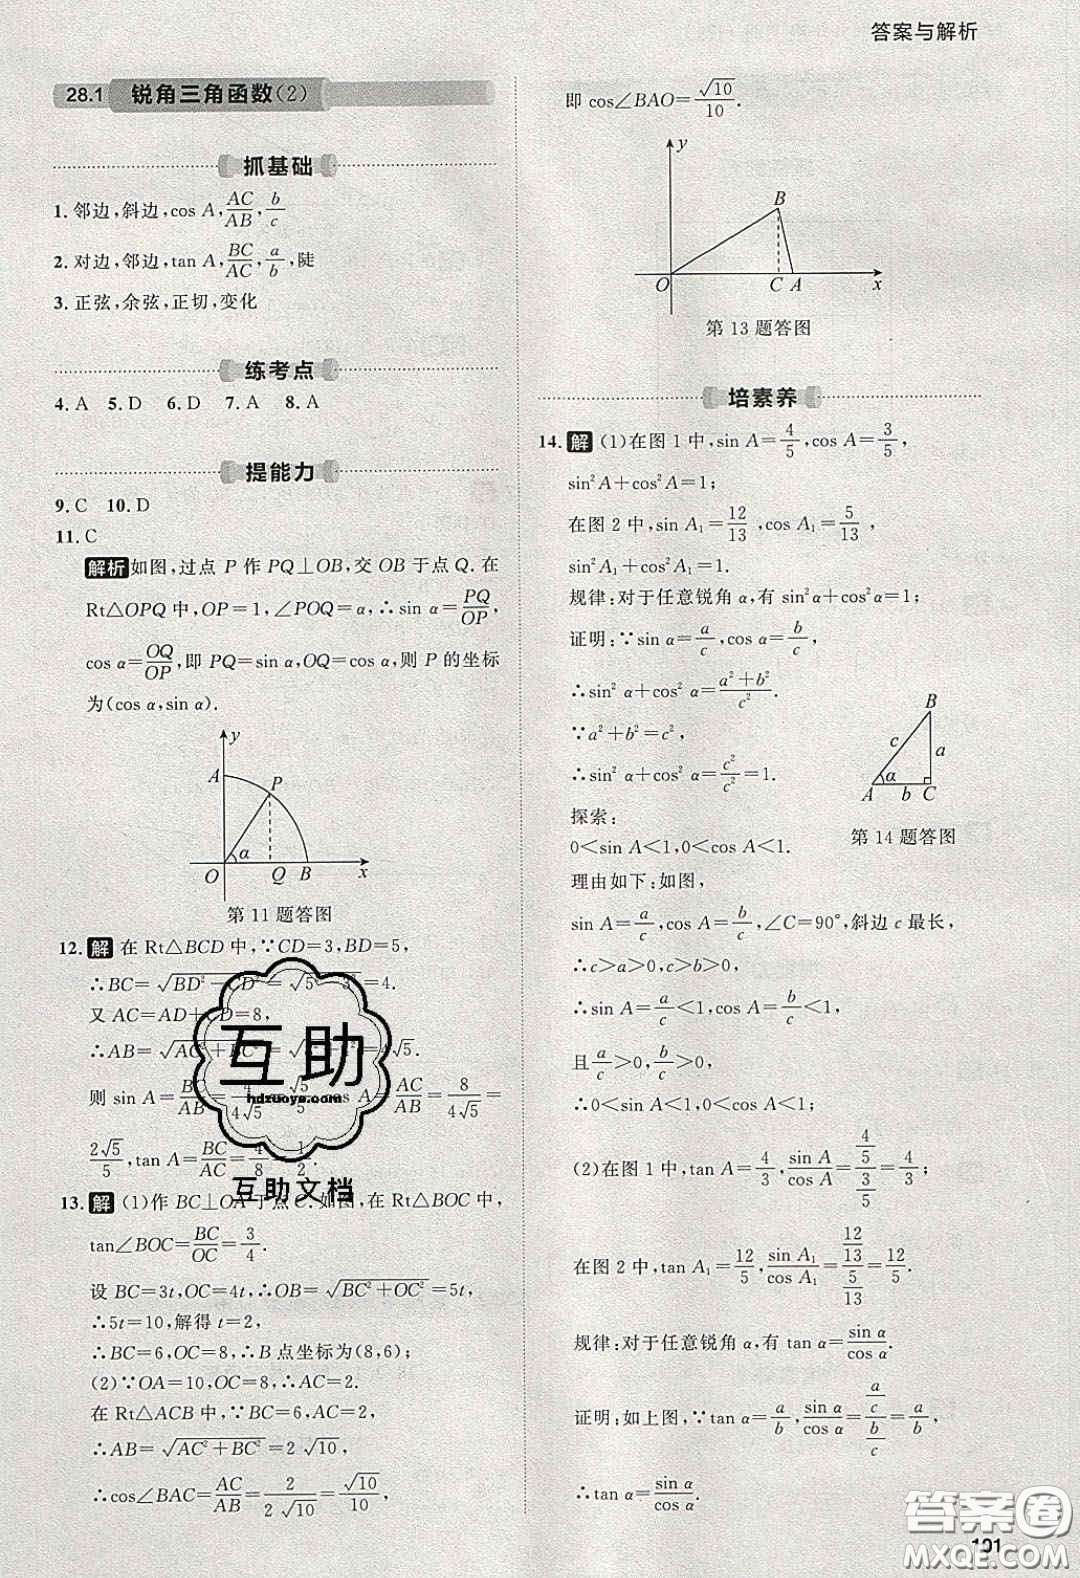 答案与解析
28.1 锐角三角函数(2)
抓基础
1. 邻边,斜边,cos A,AC/AB,b/c
2. 对边,邻边,tan A,BC/AC,a/b,陡
3. 正弦,余弦,正切,变化
练考点
4. A 5. D 6. D 7. A 8. A
提能力
9. C 10. D
11. C
解析 如图,过点 P 作 PQ⊥OB,交 OB 于点 Q. 在
Rt△OPQ 中,OP=1,∠POQ=α,∴sin α=PQ/OP,
cos α=OQ/OP,即 PQ=sin α,OQ=cos α,则 P 的坐标
为(cos α,sin α).
y
A
P
α
O Q B x
第 11 题答图
12. 解 在 Rt△BCD 中,∵CD=3,BD=5,
∴BC=√(BD²-CD²)=√(5²-3²)=4.
又 AC=AD+CD=8,
∴AB=√(AC²+BC²)=√(8²+4²)=4√5.
则 sin A=BC/AB=4/(4√5)=√5/5,cos A=AC/AB=8/(4√5)=
2√5/5,tan A=BC/AC=4/8=1/2.
互助
hdzuoye.com
互助文档
13. 解 (1)作 BC⊥OA 于点 C. 如图,在 Rt△BOC 中,
tan∠BOC=BC/OC=3/4.
设 BC=3t,OC=4t,∴OB=√(BC²+OC²)=5t,
∴5t=10,解得 t=2,
∴BC=6,OC=8,∴B 点坐标为(8,6);
(2)∵OA=10,OC=8,∴AC=2.
在 Rt△ACB 中,∵BC=6,AC=2,
∴AB=√(AC²+BC²)=2√10,
∴cos∠BAC=AC/AB=2/(2√10)=√10/10,
即 cos∠BAO=√10/10.
y
B
O C A x
第 13 题答图
培素养
14. 解 (1)在图 1 中,sin A=4/5,cos A=3/5,
sin²A+cos²A=1;
在图 2 中,sin A₁=12/13,cos A₁=5/13,
sin²A₁+cos²A₁=1.
规律:对于任意锐角 α,有 sin²α+cos²α=1;
证明:∵sin α=a/c,cos α=b/c,
∴sin² α+cos² α=(a²+b²)/c².
∵a²+b²=c²,
∴sin² α+cos² α=c²/c²=1.
探索:
0<sin A<1,0<cos A<1.
理由如下:如图,
B
c a
α
A b C
第 14 题答图
sin A=a/c,cos A=b/c,∠C=90°,斜边 c 最长,
∴c>a>0,c>b>0,
∴sin A=a/c<1,cos A=b/c<1,
且 a/c>0,b/c>0,
∴0<sin A<1,0<cos A<1;
(2)在图 1 中,tan A=4/3,sin A/cos A=(4/5)/(3/5)=4/3;
在图 2 中,tan A₁=12/5,sin A₁/cos A₁=(12/13)/(5/13)=12/5.
规律:对于任意锐角 α,有 tan α=sin α/cos α.
证明:如上图,∵tan α=a/b,sin α/cos α=(a/c)/(b/c)=a/b,
∴tan α=sin α/cos α.
101
答案圈
MXQE.COM